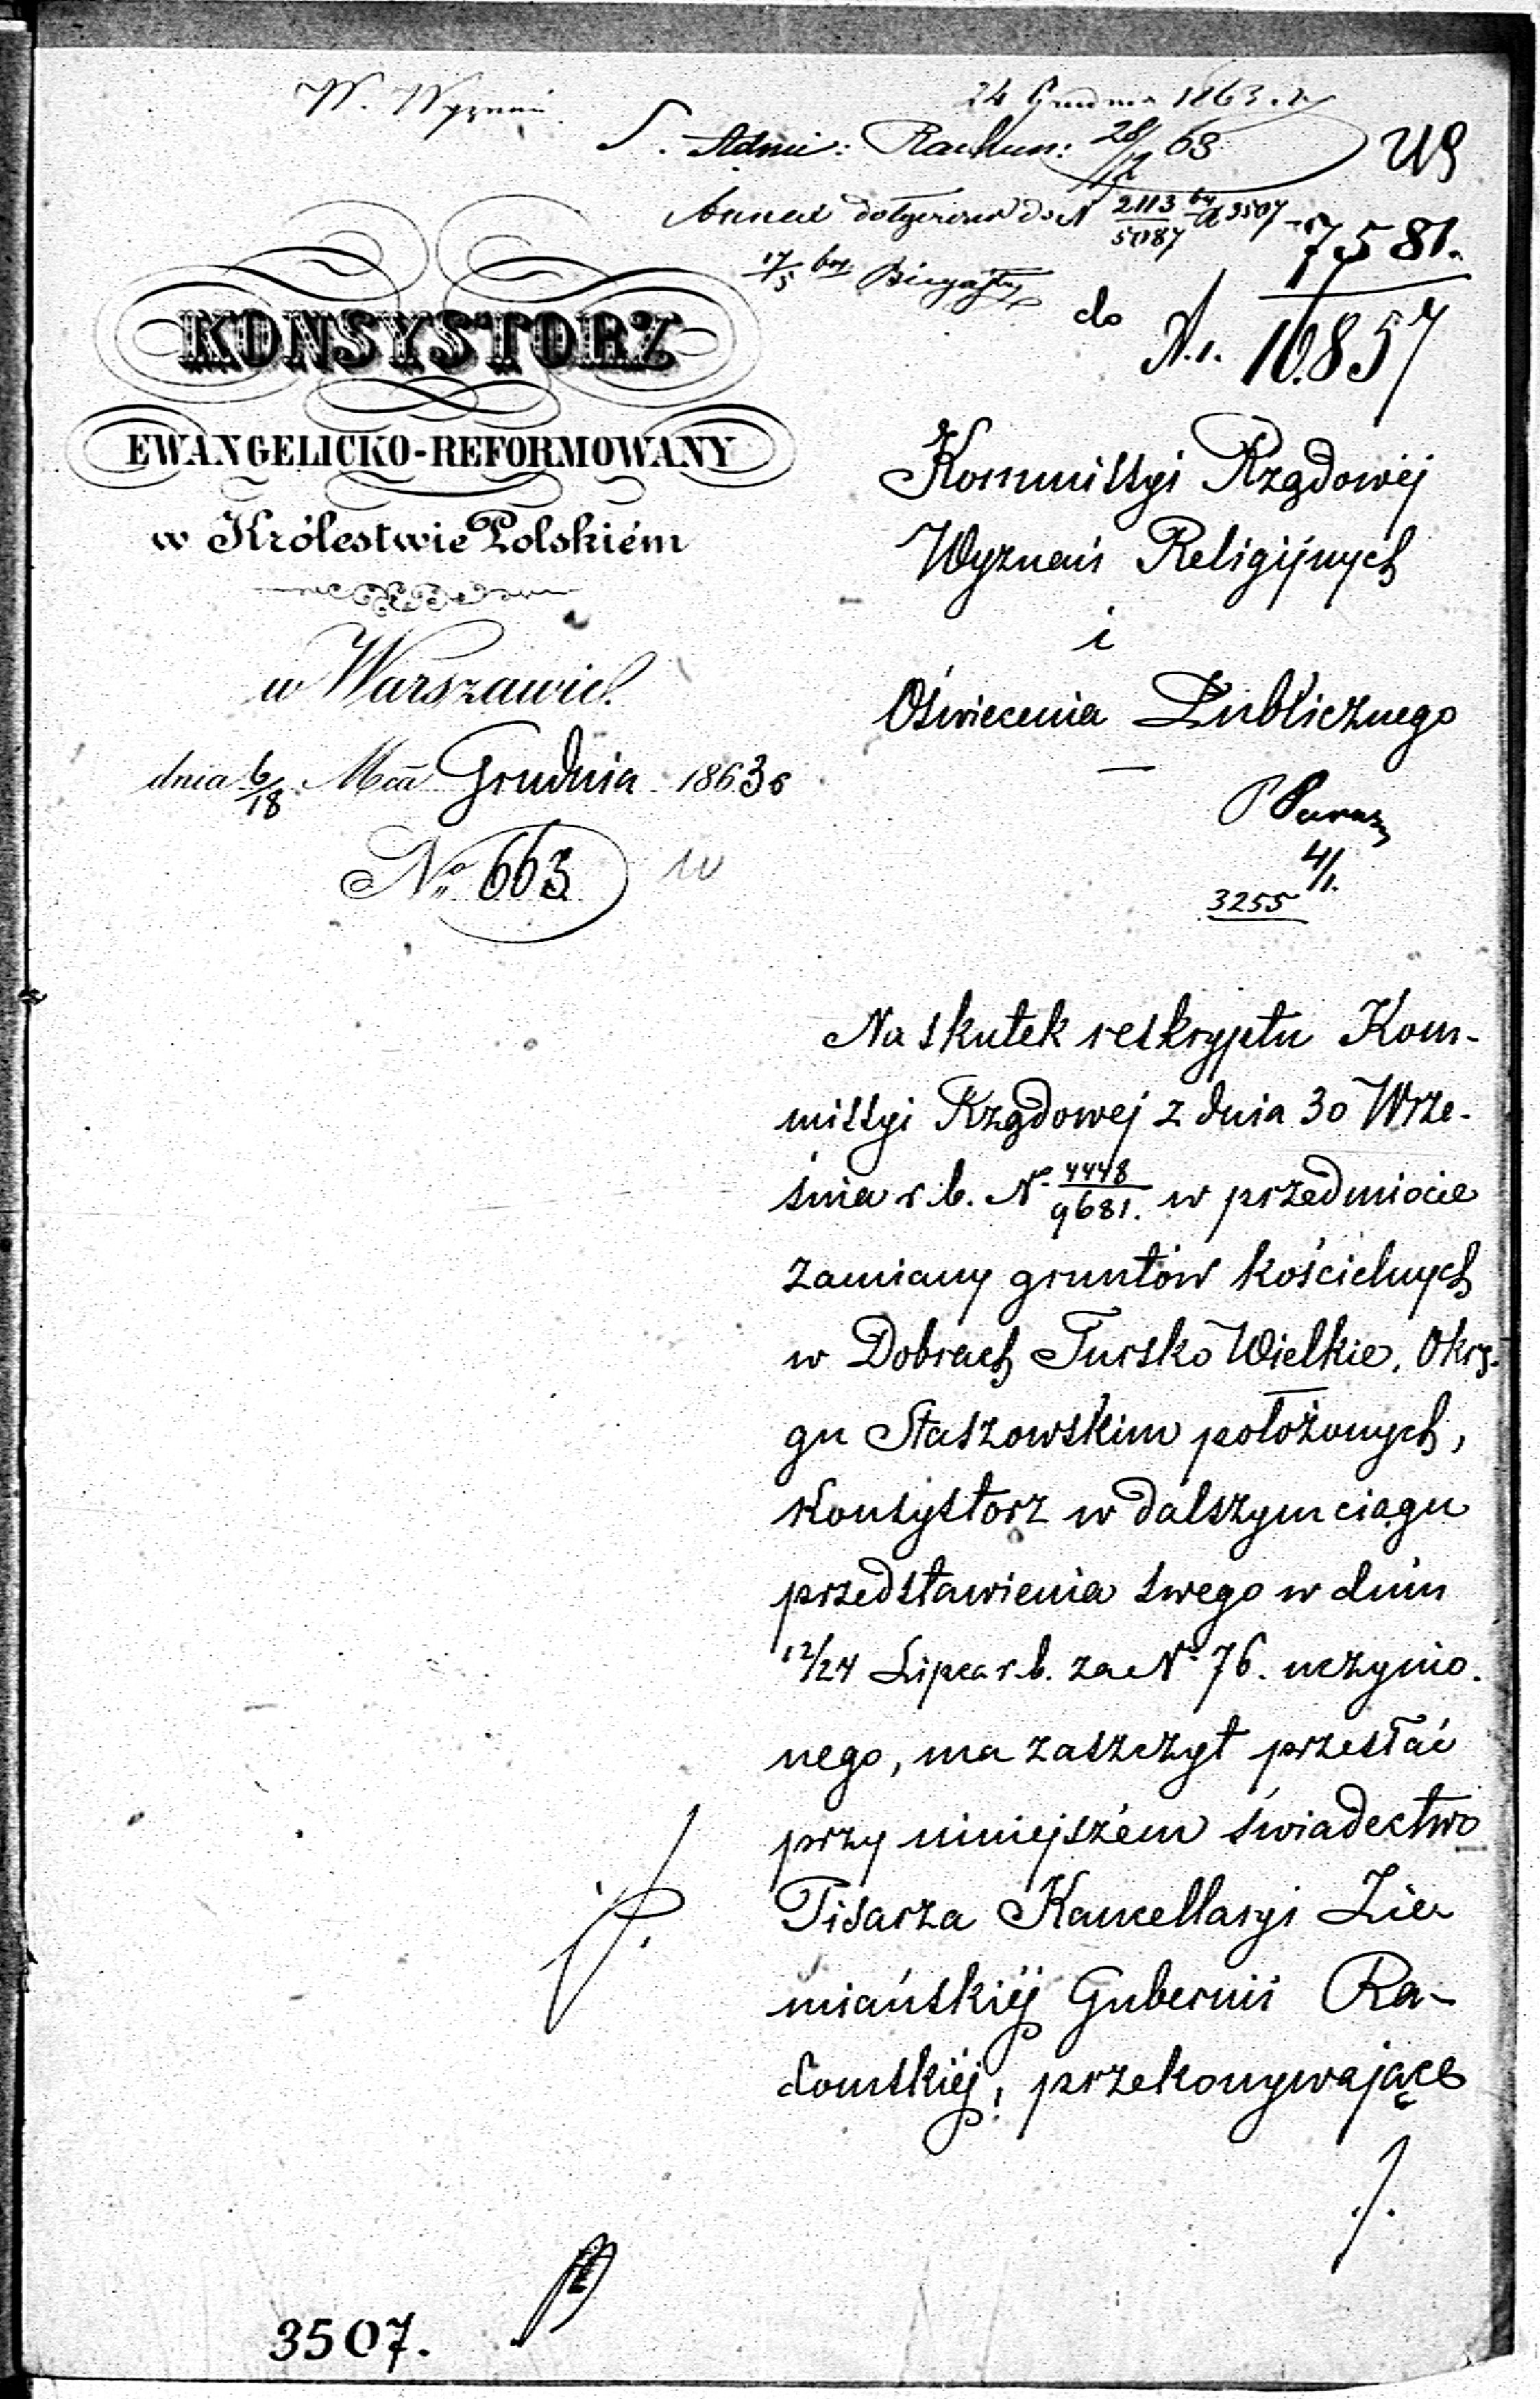 W. Wyznań
24 Grudnia 1863. r.
S. Admi: Rachun: 28/12 63
219
Annex dołączono do N 2113/5087 3507
7581.
17/5
do N. 10.857
KONSYSTORZ
EWANGELICKO-REFORMOWANY
w Królestwie Polskiém
w Warszawie.
dnia 6/18 Mca Grudnia 1863 r
No 663
Kommissyi Rządowéj
Wyznań Religijnych
i
Oświecenia Publicznego
4/1.
3255
Na skutek reskryptu Kom-
missyi Rządowej z dnia 30 Wrze-
śnia r.b. N. 4448/9681. w przedmiocie
zamiany gruntów kościelnych
w Dobrach Tursko Wielkie, Okrę-
gu Staszowskim położonych,
Konsystorz w dalszym ciągu
przedstawienia swego w dniu
12/24 Lipca r.b. za No 76. uczynio-
nego, ma zaszczyt przesłać
przy niniejszém świadectwo
Pisarza Kancellaryi Zie-
miańskiéj Gubernii Ra-
domskiéj, przekonywające
./.
3507.